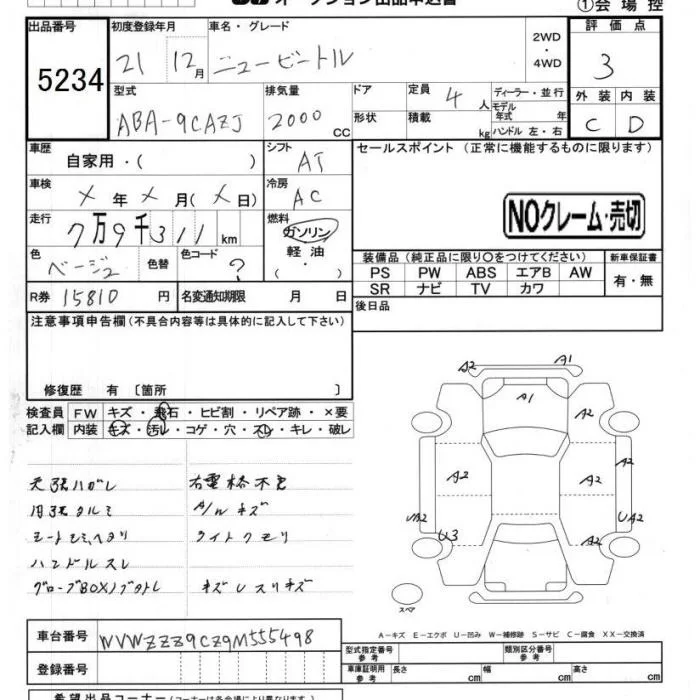 オークション出品申込書
①会場控
出品番号
5234
初度登録年月
21 12月
車名・グレード
ニュービートル
2WD
・
4WD
評価点
3
型式
ABA-9CAZJ
排気量
2000 CC
ドア
形状
定員
4 人
積載
kg
ディーラー・並行
モデル年式 年
ハンドル 左・右
外装 内装
C D
車歴
自家用・( )
シフト
AT
セールスポイント (正常に機能するものに限ります)
車検
× 年 × 月 (× 日)
冷房
AC
NOクレーム・売切
走行
7万9千311 km
燃料
ガソリン
軽油
・( )
色
ベージュ
色替
色コード
?
装備品 (純正品に限り○をつけてください)
PS PW ABS エアB AW
SR ナビ TV カワ
新車保証書
有・無
R券 15810 円
名変通知期限 月 日
後日品
注意事項申告欄 (不具合内容等は具体的に記入して下さい)
修復歴 有 〔箇所 〕
検査員記入欄
FW キズ・飛石・ヒビ割・リペア跡・×要
内装 キズ・汚レ・コゲ・穴・スレ・キレ・破レ
天張ハガレ
内張タルミ
シートヒビヘタリ
ハンドルスレ
グローブBOXノブ
A/W キズ
ライトクモリ
キズUスリキズ
A2 A1
A1
A2
A2 A2 A2
UA2 UA2
U3 A2
スペア
A-キズ E-エクボ U-凹み W-補修跡 S-サビ C-腐食 XX-交換済
車台番号
WVWZZZ9CZ9M555498
登録番号
型式指定番号
参考
類別区分番号
参考
車庫証明用
参考
長さ cm
幅 cm
高さ cm
希望出品コーナー (コーナーは各会場により異なります)